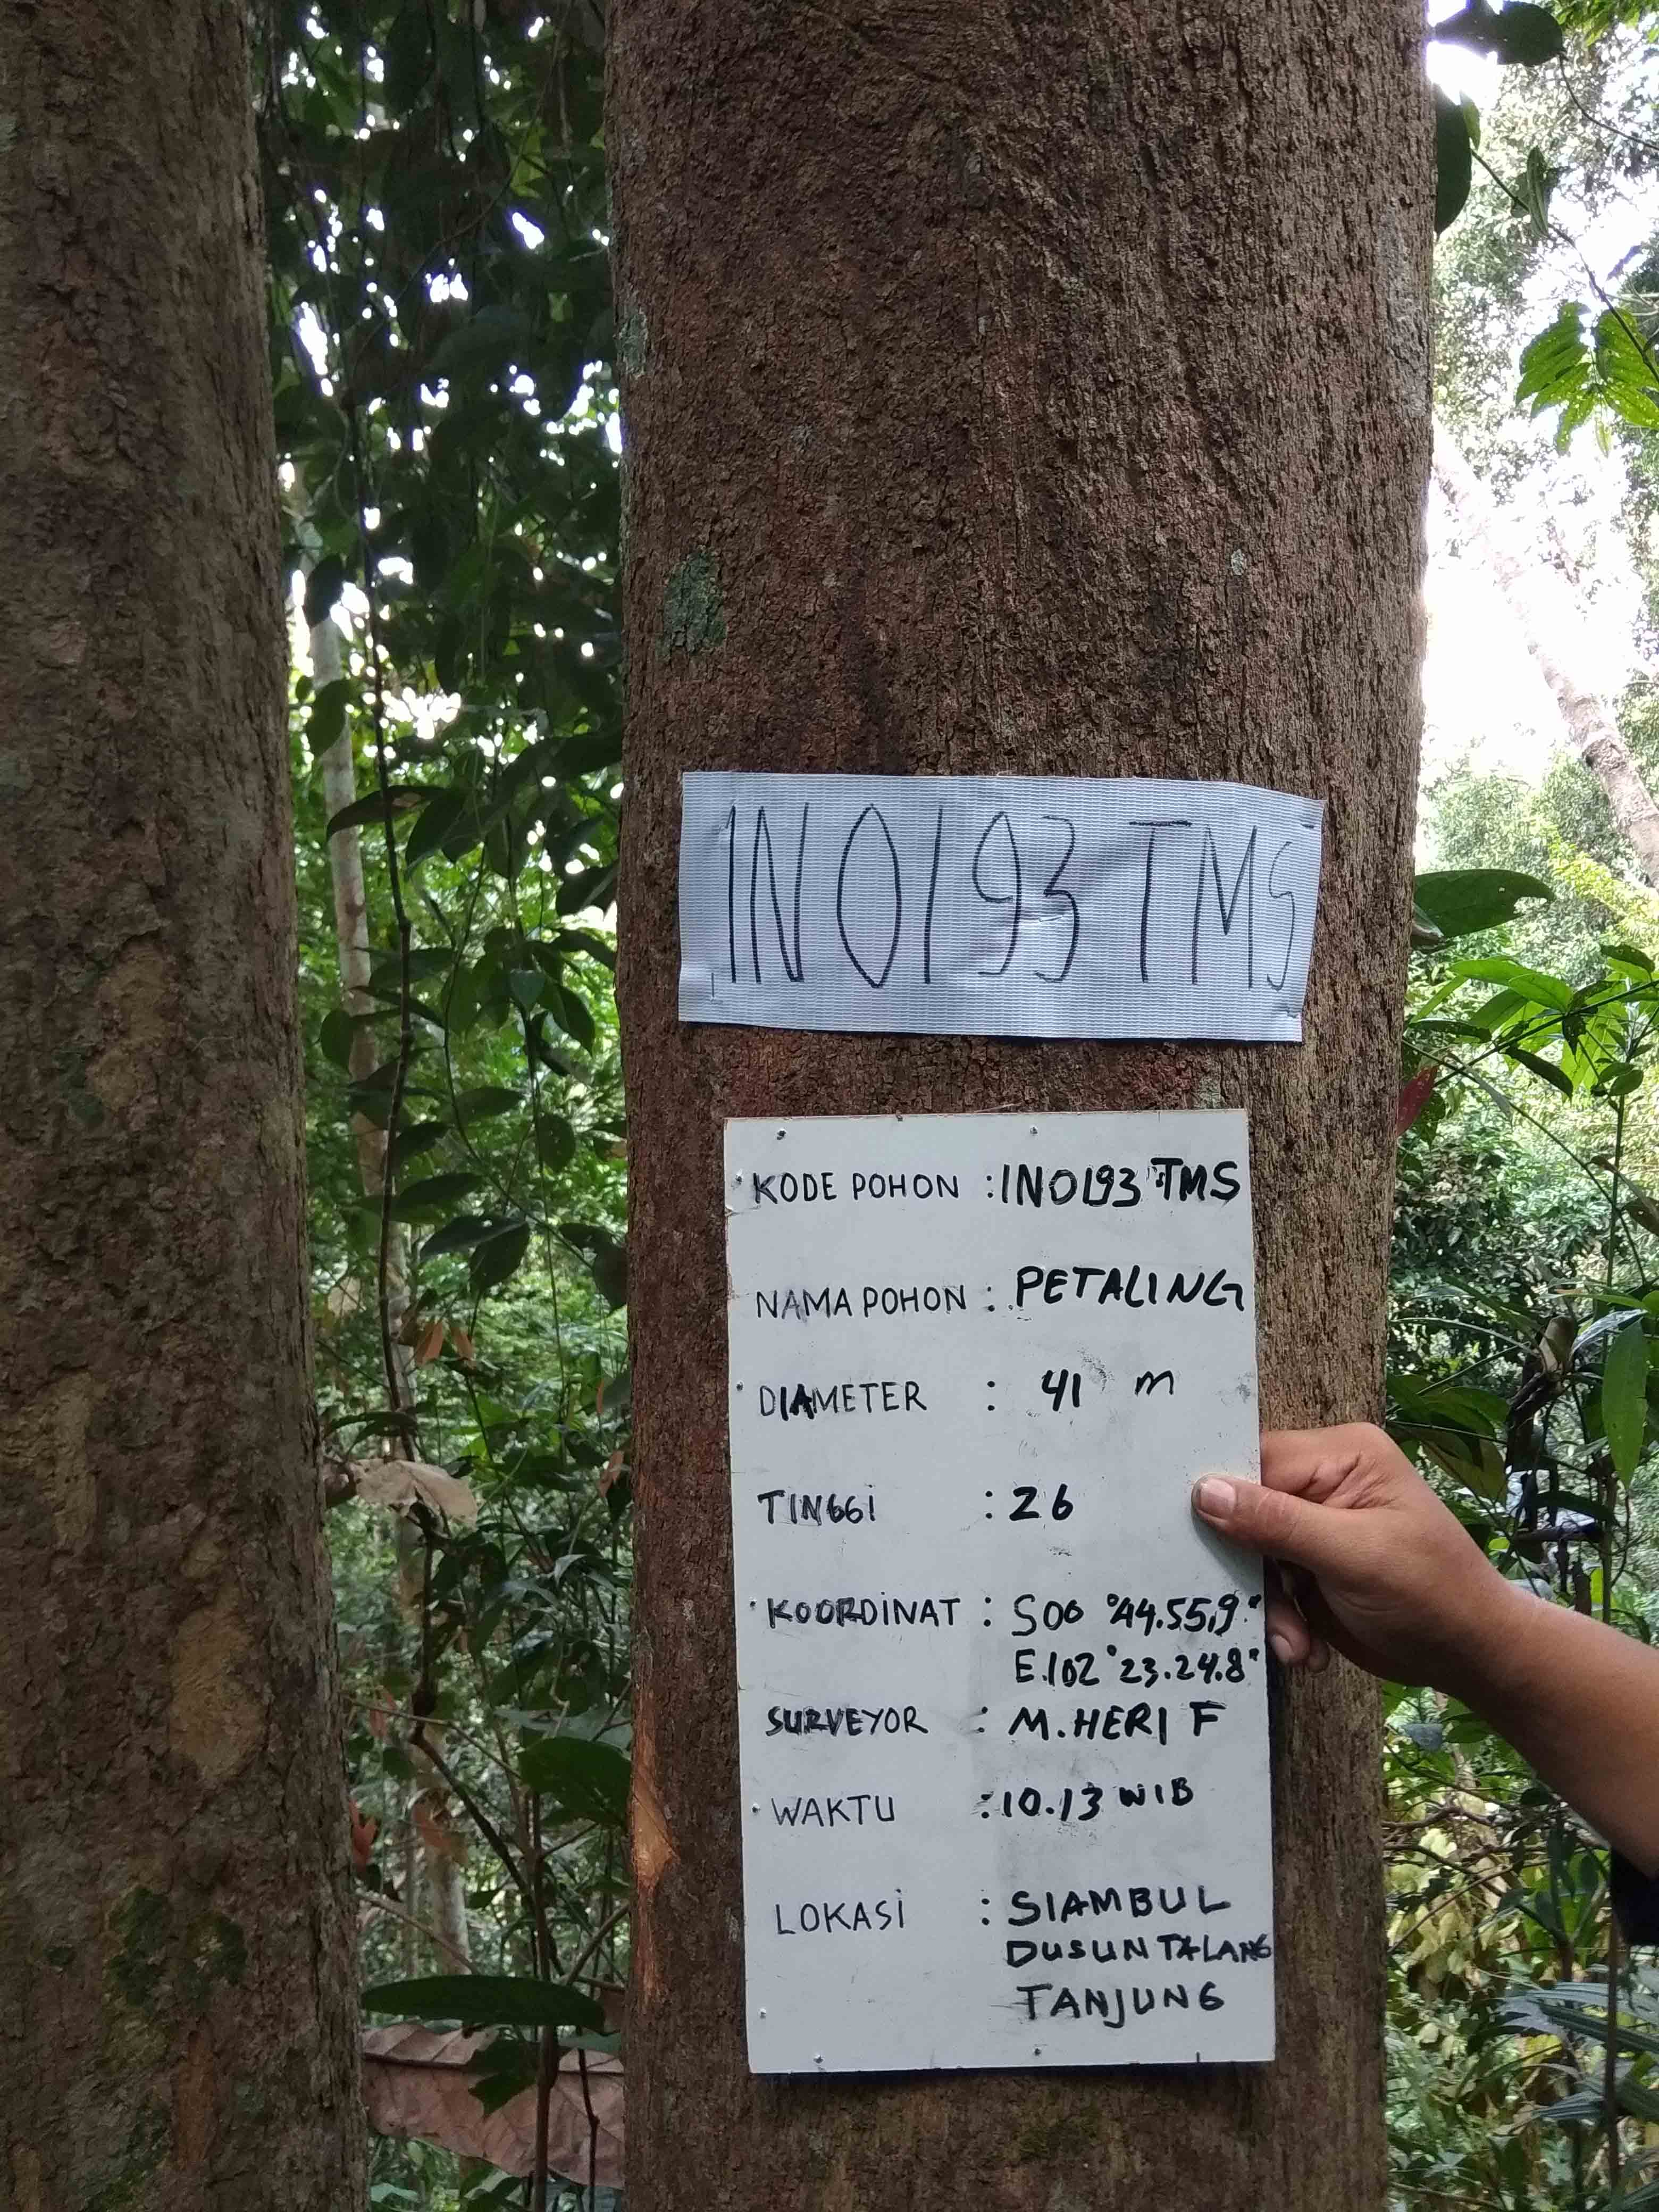 INO193 TMS
KODE POHON : INO193 TMS
NAMA POHON : PETALING
DIAMETER : 41 m
TINGGi : 26
KOORDiNAT : S00 °44.55,9"
E.102 °23.24.8"
SURVEYOR : M. HERI F
WAKTU : 10.13 WIB
LOKASi : SIAMBUL
DUSUN TALANG
TANJUNG